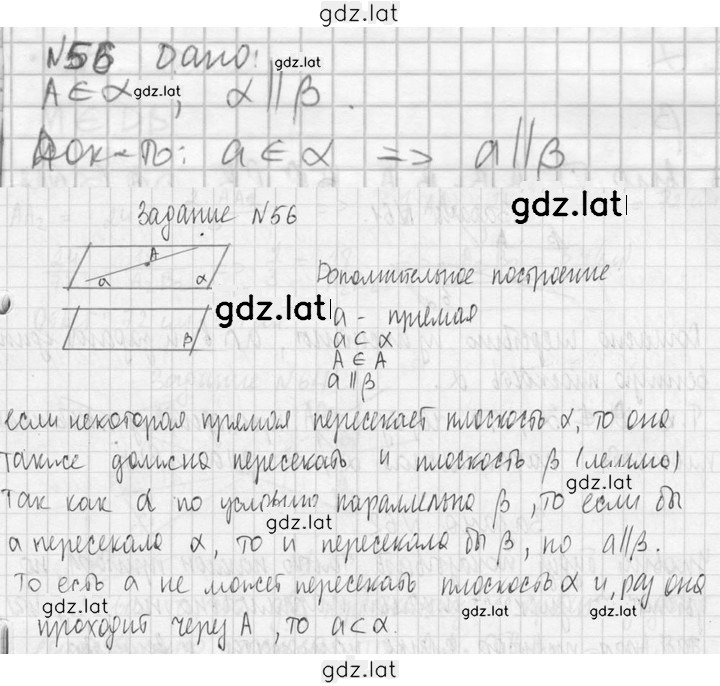 gdz.lat
N56 Дано: gdz.lat
A ∈ α gdz.lat, α || β.
Док-ть: a ∈ α => a || β
Задание N56 gdz.lat
A
a α
β
gdz.lat
Дополнительное построение
a - прямая
a ⊂ α
A ∈ A
a || β
если некоторая прямая пересекает плоскость α, то она
также должна пересекать и плоскость β (лемма)
gdz.lat
Так как α по условию параллельна β, то если бы
gdz.lat
a пересекала α, то и пересекала бы β, но a||β.
То есть a не может пересекать плоскость α и, раз она
gdz.lat gdz.lat
проходит через A, то a ⊂ α.
gdz.lat
gdz.lat